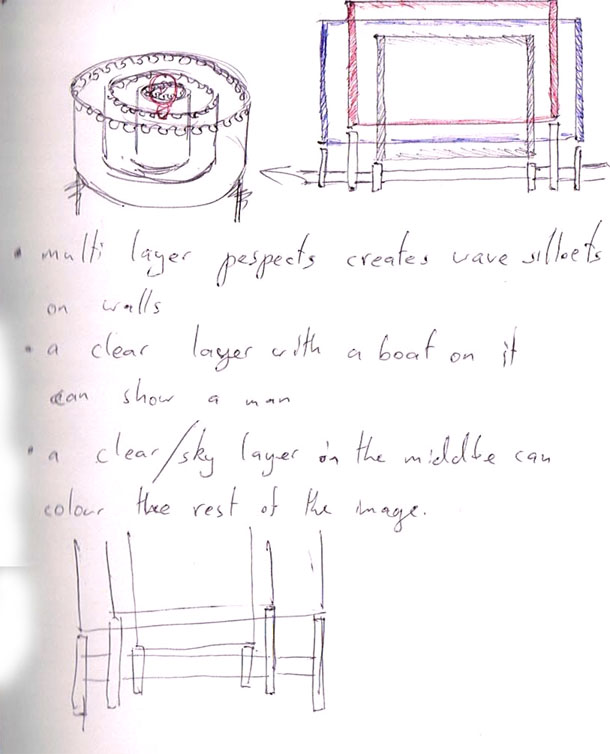 • multi layer pespects creates wave silloets
on walls
• a clear layer with a boat on it
can show a man
• a clear/sky layer in the middle can
colour the rest of the image.